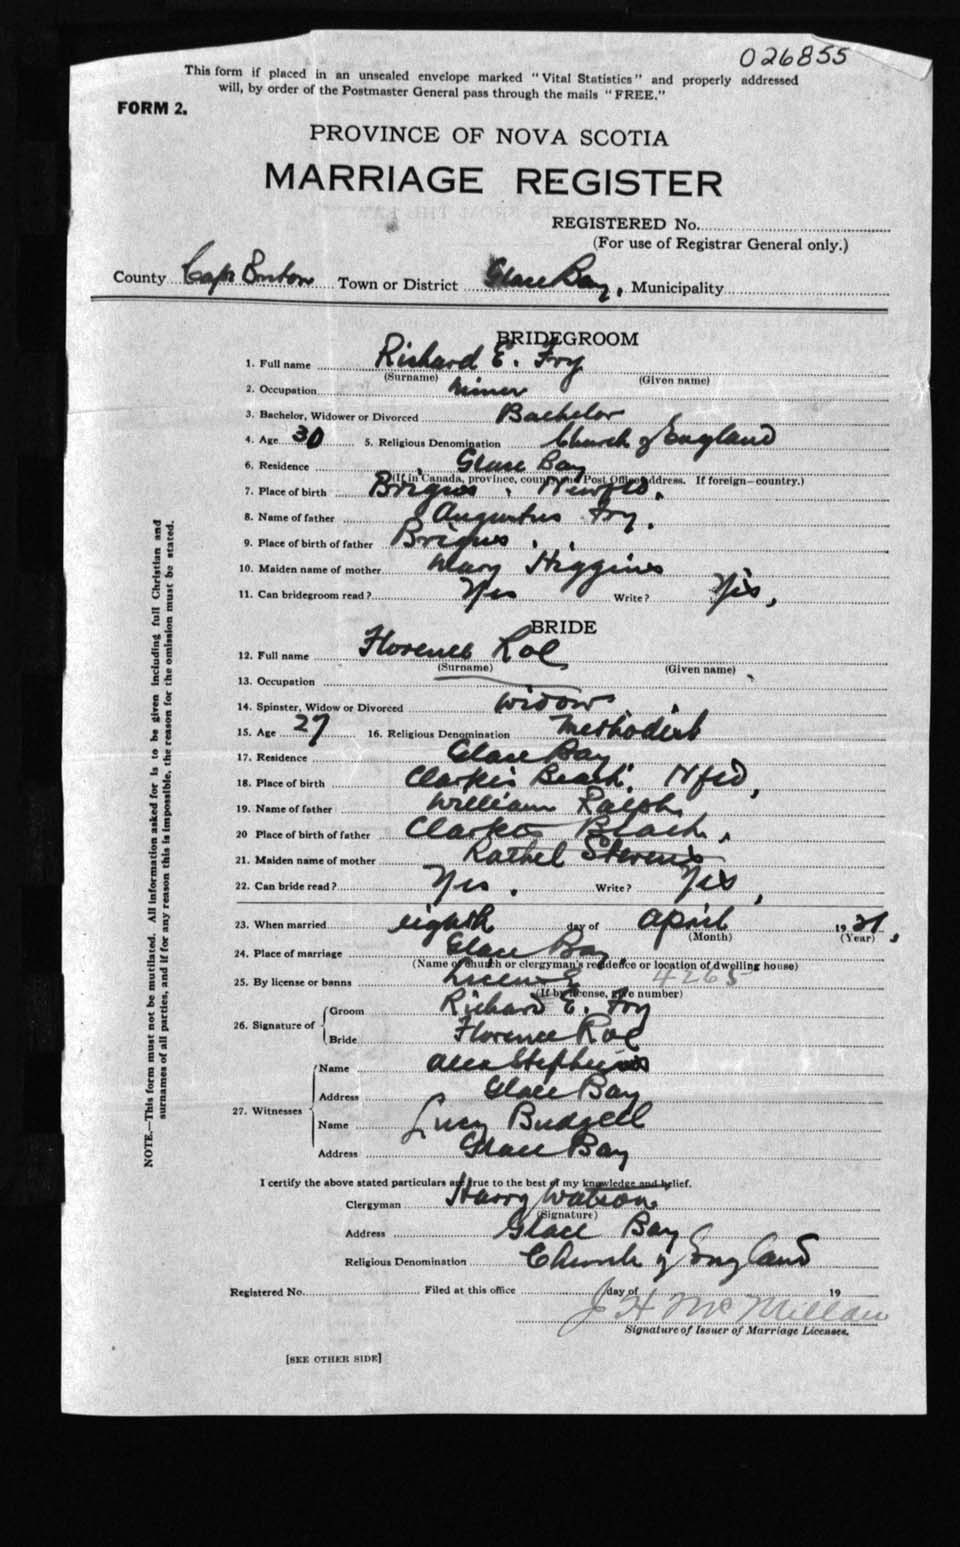 026855
This form if placed in an unsealed envelope marked "Vital Statistics" and properly addressed
will, by order of the Postmaster General pass through the mails "FREE."
FORM 2.
PROVINCE OF NOVA SCOTIA
MARRIAGE REGISTER
REGISTERED No.
(For use of Registrar General only.)
County Cape Breton Town or District Glace Bay, Municipality
BRIDEGROOM
1. Full name Richard E. Fry
(Surname) (Given name)
2. Occupation Miner
3. Bachelor, Widower or Divorced Bachelor
4. Age 30 5. Religious Denomination Church of England
6. Residence Glace Bay
(If in Canada, province, county and Post Office address. If foreign—country.)
7. Place of birth Brigus, Newfld.
8. Name of father Augustus Fry.
9. Place of birth of father Brigus.
10. Maiden name of mother Mary Higgins
11. Can bridegroom read? Yes Write? Yes,
BRIDE
12. Full name Florence Roe
(Surname) (Given name)
13. Occupation
14. Spinster, Widow or Divorced Widow
15. Age 27 16. Religious Denomination Methodist
17. Residence Glace Bay
18. Place of birth Clarke's Beach, Nfld,
19. Name of father William Ralph
20 Place of birth of father Clarkes Beach.
21. Maiden name of mother Rachel
22. Can bride read? Yes. Write? Yes,
23. When married eighth day of April 1921,
(Month) (Year)
24. Place of marriage Glace Bay.
(Name of church or clergyman's residence or location of dwelling house)
25. By license or banns License 4265
(If by license, give number)
26. Signature of
Groom Richard E. Fry
Bride Florence Roe
27. Witnesses
Name Alex Stephens
Address Glace Bay
Name Lucy Budgell
Address Glace Bay
I certify the above stated particulars are true to the best of my knowledge and belief.
Clergyman Harry Watson
(Signature)
Address Glace Bay
Religious Denomination Church of England
Registered No. Filed at this office day of 19
J H McMillan
Signature of Issuer of Marriage Licenses.
[SEE OTHER SIDE]
NOTE.—This form must not be mutilated. All information asked for is to be given including full Christian and
surnames of all parties, and if for any reason this is impossible, the reason for the omission must be stated.